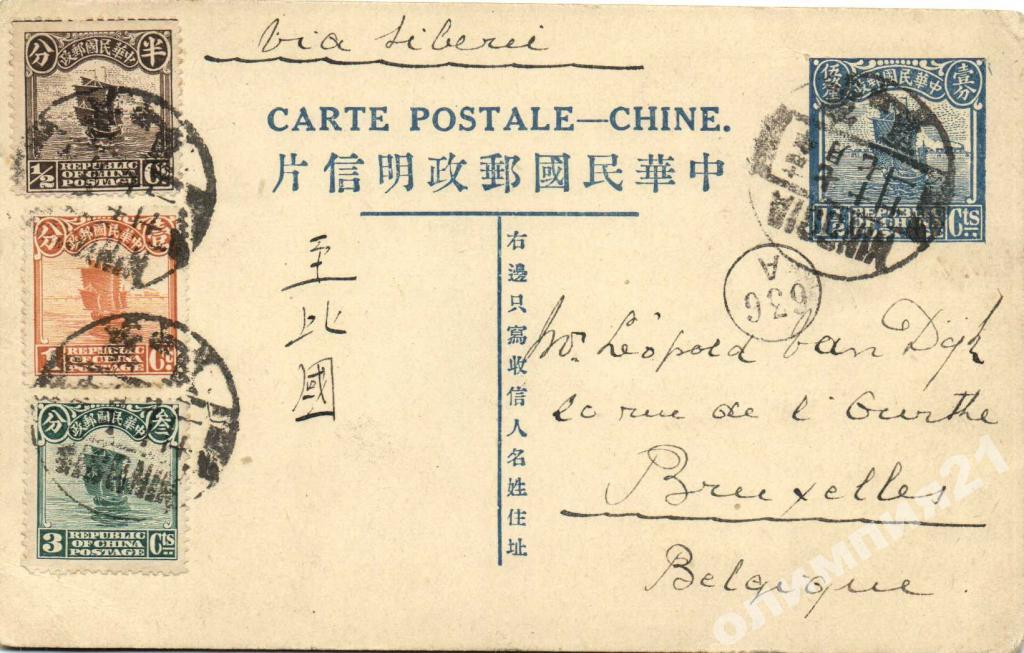 via Siberie
CARTE POSTALE—CHINE.
片信明政郵國民華中
分 半
政郵國民華中
1/2 REPUBLIC OF CHINA POSTAGE Cts
分 壹
政郵國民華中
1 REPUBLIC OF CHINA POSTAGE Ct
分 叁
政郵國民華中
3 REPUBLIC OF CHINA POSTAGE Cts
壹分
政郵國民華中
Cts
636
A
至比國
右邊只寫收信人名姓住址
Mr Léopold van Dijk
rue de l'Ourthe
Bruxelles
Belgique
олимпия21